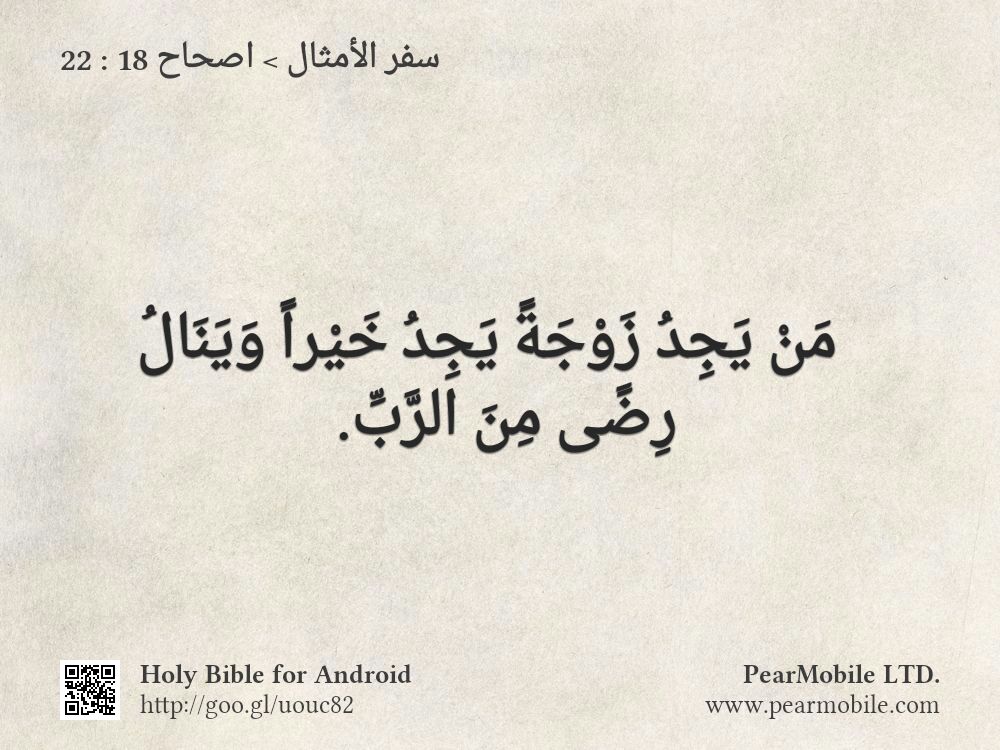 سفر الأمثال > اصحاح 18 : 22
مَنْ يَجِدُ زَوْجَةً يَجِدُ خَيْراً وَيَنَالُ
رِضًى مِنَ الرَّبِّ.
Holy Bible for Android
http://goo.gl/uouc82
PearMobile LTD.
www.pearmobile.com